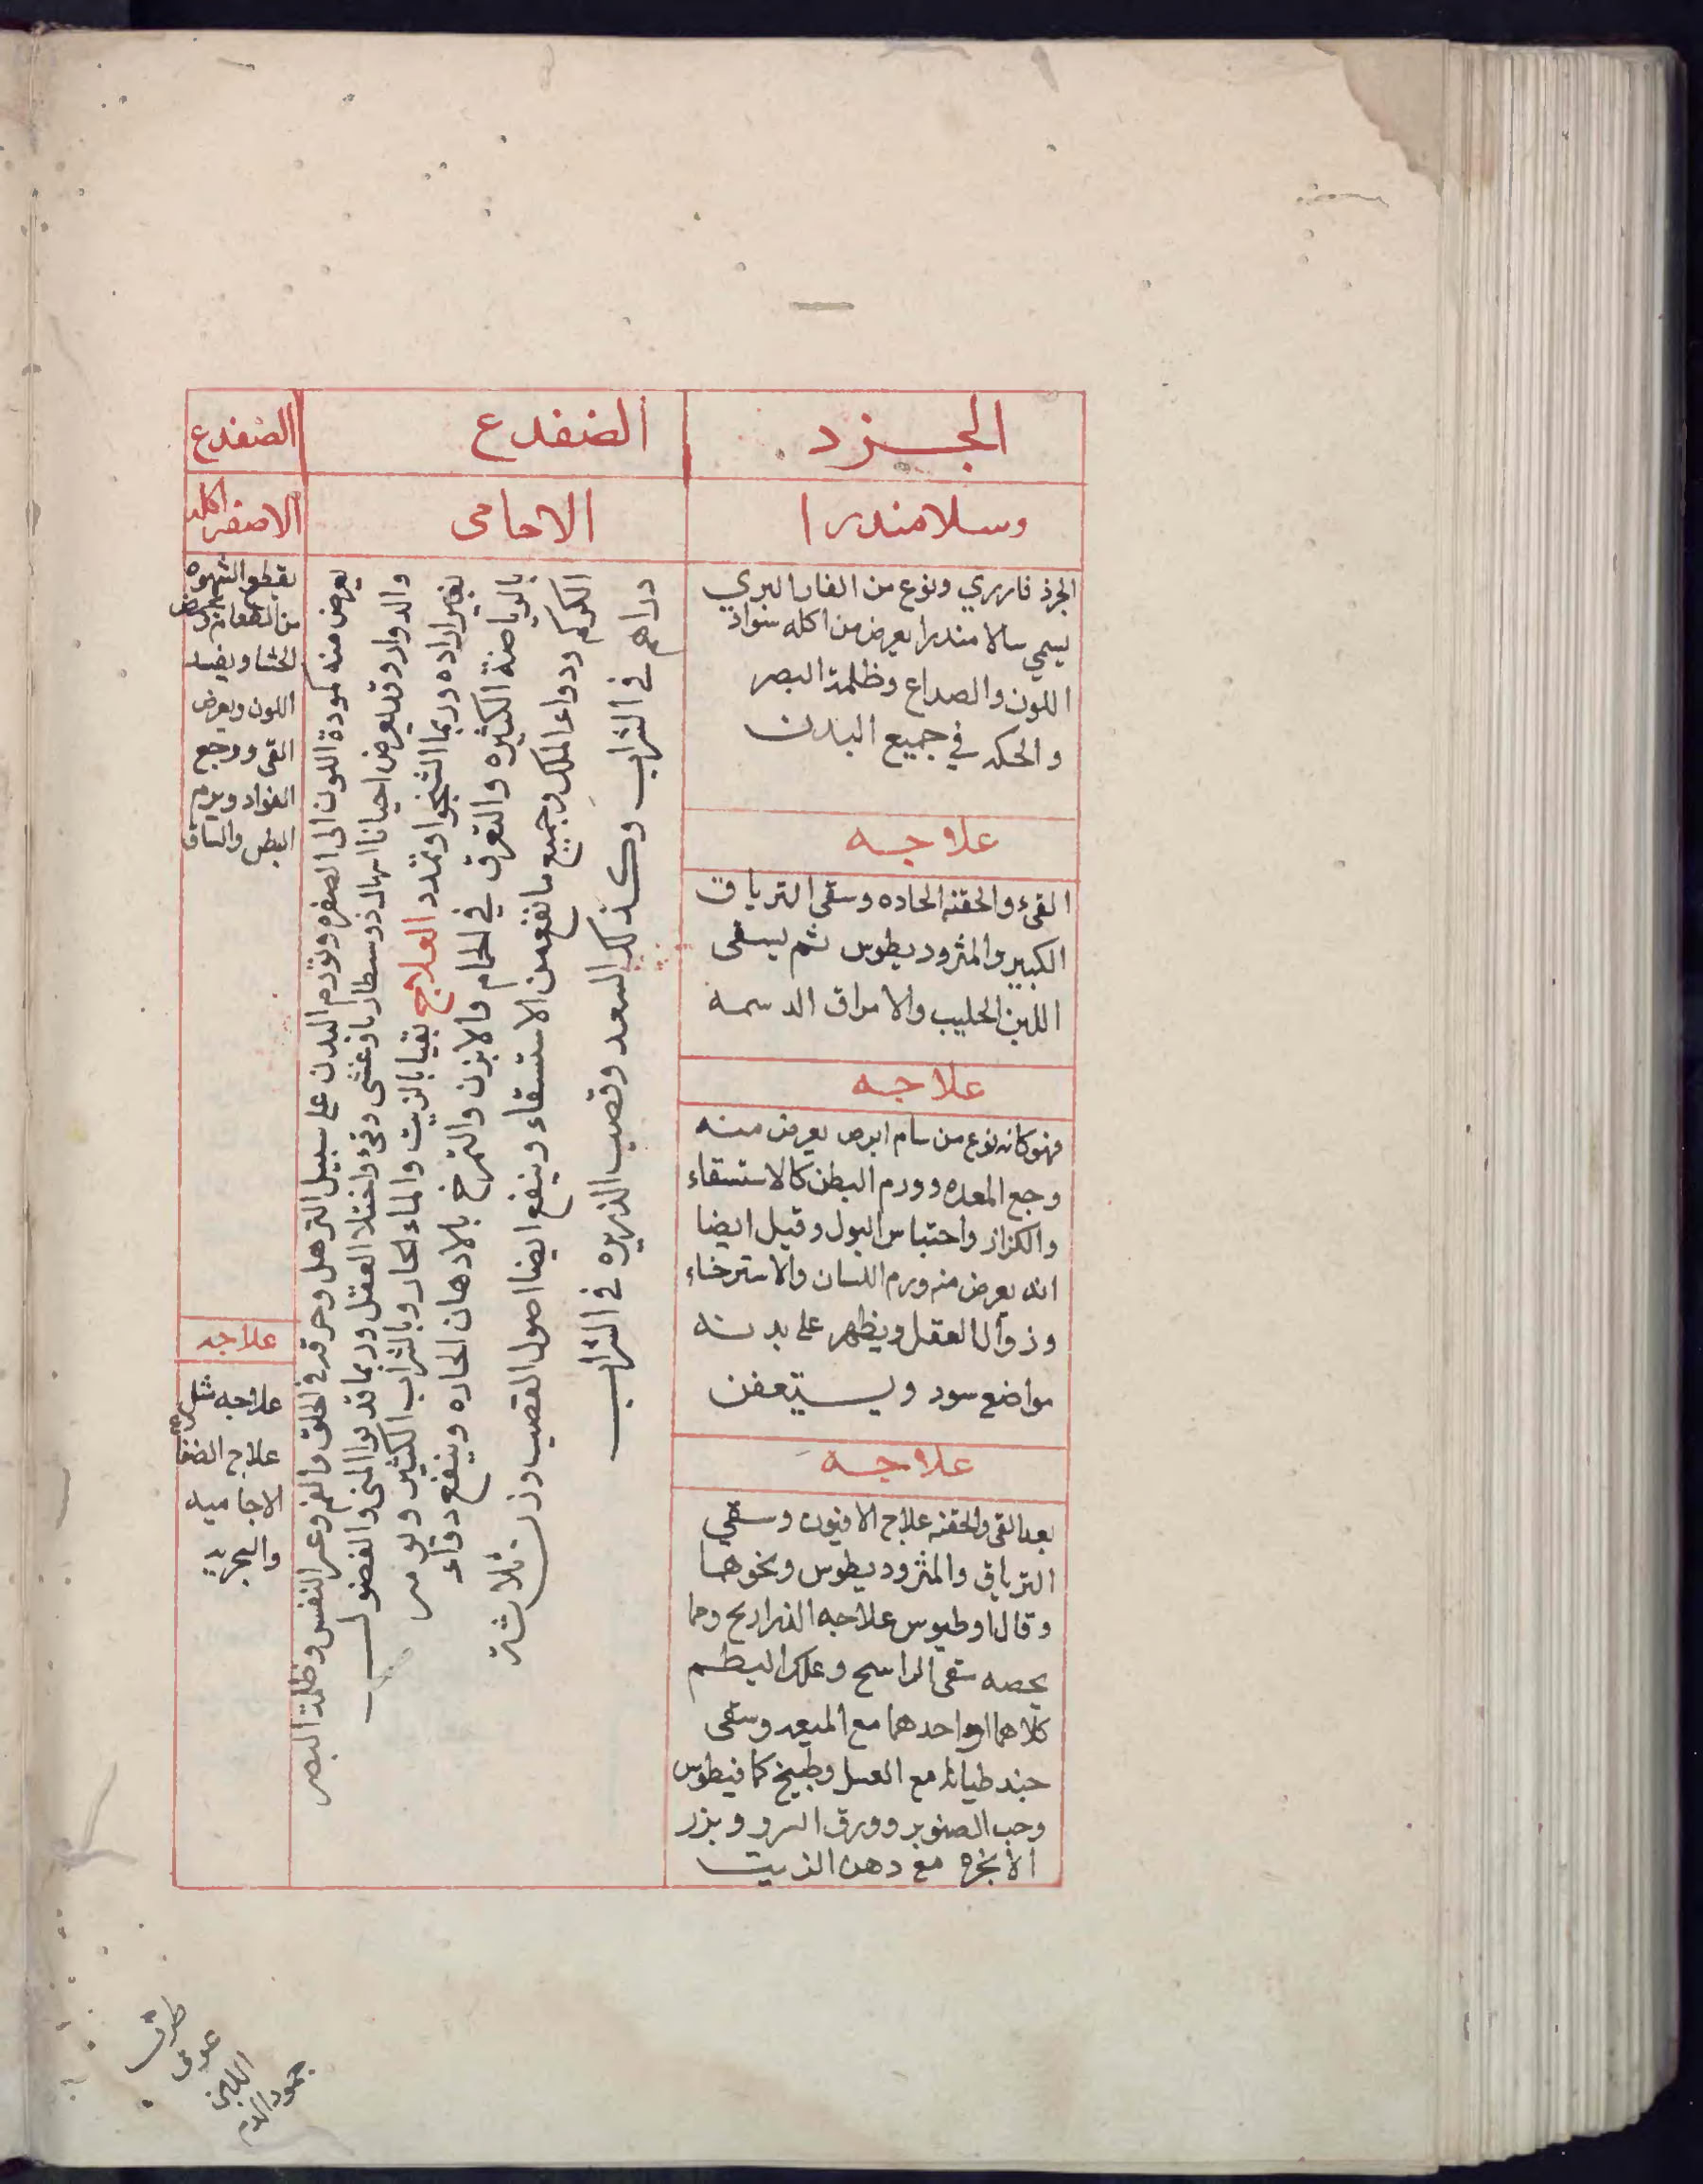 الجزد
وسلامندرا
الجرذ فاربري ونوع من الفار البري
يسمي سالامندرا يعرض من اكله سواد
اللون والصداع وظلمة البصر
والحكه في جميع البدن
علاجه
القيء والحقنه الحاده وسقي الترياق
الكبير والمثروديطوس ثم يسقى
اللبن الحليب والامراق الدسمه
علاجه
فهو كانه نوع من سام ابرص يعرض منه
وجع المعده وورم البطن كالاستسقاء
والكزاز واحتباس البول وقيل ايضا
انه يعرض منه ورم اللسان والاسترخاء
وزوال العقل ويظهر على بدنه
مواضع سود ويستعفن
علاجه
بعد القي والحقنه علاج الافيون وسقي
الترياق والمثروديطوس ونحوها
وقال اوطيوس علاجه الذراريح ومما
يخصه سقى الراسح وعلك البطم
كلاهما او احدهما مع الميعه وسقى
جندطيانا مع العسل وطبيخ كمافيطوس
وحب الصنوبر وورق السرو وبزر
الانجره مع دهن الزيت
الضفدع
الاحامى
يعرض منه كمودة اللون الى الصفره وتورم البدن على سبيل الترهل وحرقه في الحلق والفم وعسر النفس وظلمة البصر
والدوار وقد يعرض احيانا اسهال ذوسنطاريا وغشى وقيء واختلا العقل وربما قذبوا المنى والفضول
بغير اراده وربما الشنجوا وتمدد العلاج بقيا بالزيت والماء الحار وبالشراب الكثير ويومر
بالرياضة الكثيره والتعرق في الحمام والابزن والتمرخ بالادهان الحاره وينفع دواء
الكركم ودواء الملك وجميع ما نفع من الاستسقاء وينفع ايضا اصول القصب وزن ثلاثة
دراهم في الشراب وكذلك السعد وقصب الذريره في الشراب
الضفدع
الاصفر اكله
يقطع الشهوه
من الطعام ويعرض
الجشا ويفسد
اللون ويعرض
القي ووجع
الفواد ويرم
البطن والساق
علاجه
علاجه مثل
علاج الضفادع
الاجاميه
والبحرية